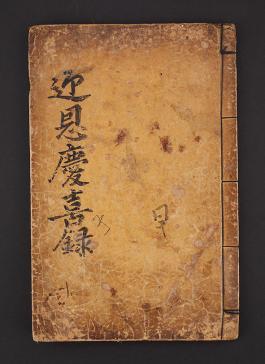 迎恩慶喜録